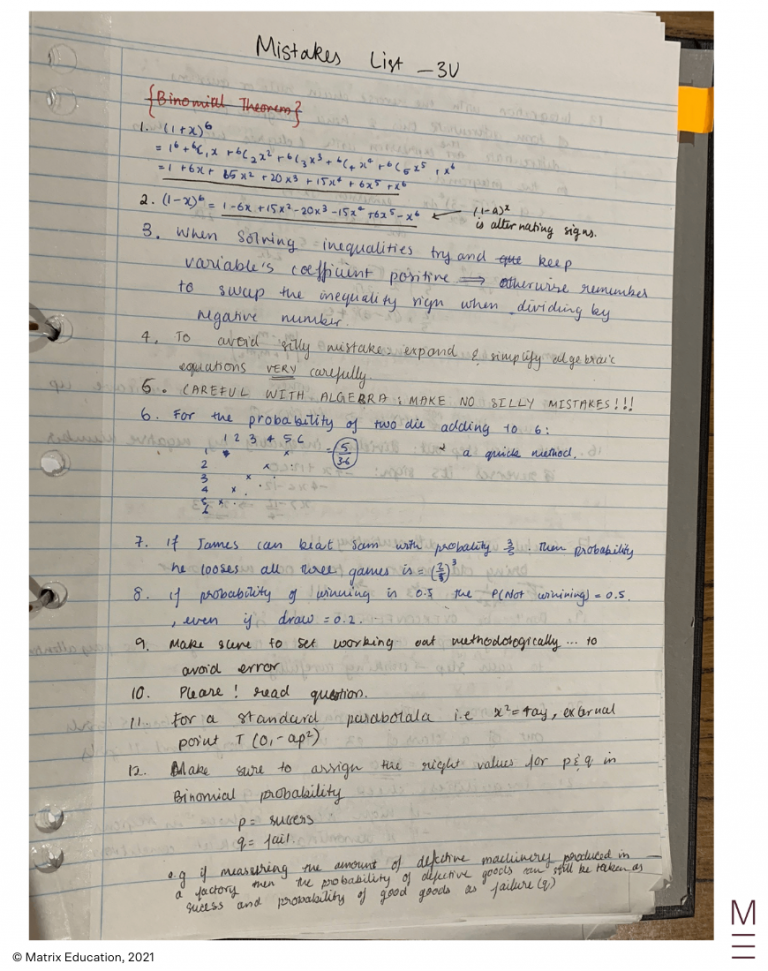 Mistakes List - 3U
{Binomial Theorem}
1. (1+x)⁶
= 1⁶ + ⁶C₁x + ⁶C₂x² + ⁶C₃x³ + ⁶C₄x⁴ + ⁶C₅x⁵ + x⁶
= 1 + 6x + 15x² + 20x³ + 15x⁴ + 6x⁵ + x⁶
2. (1-x)⁶ = 1-6x+15x²-20x³-15x⁴+6x⁵-x⁶ ← is alternating signs.
3. When solving inequalities try and keep
variable's coefficient positive ⟹ otherwise remember
to swap the inequality sign when dividing by
negative number.
4. To avoid silly mistakes expand & simplify algebraic
equations VERY carefully.
5. CAREFUL WITH ALGEBRA; MAKE NO SILLY MISTAKES!!!
6. For the probability of two die adding to 6:
1 2 3 4 5 6
1
2
3
4
5
6
= 5/36
a quick method.
7. If James can beat Sam with probality 3/5. Then probability
he looses all three games is = (2/5)³
8. if probability of winning is 0.5 the P(Not winining) = 0.5
, even if draw = 0.2.
9. Make sure to set working out methodologically ... to
avoid error
10. Please! read question.
11. For a standard parabolala i.e x²=4ay, external
point T (0,-ap²)
12. Make sure to assign the right values for p & q in
Binomial probability
p = sucess
q = fail.
e.g if measuring the amount of defective machinery produced in
a factory then the probability of defective goods can still be taken as
sucess and probability of good goods as failure (q)
© Matrix Education, 2021
M